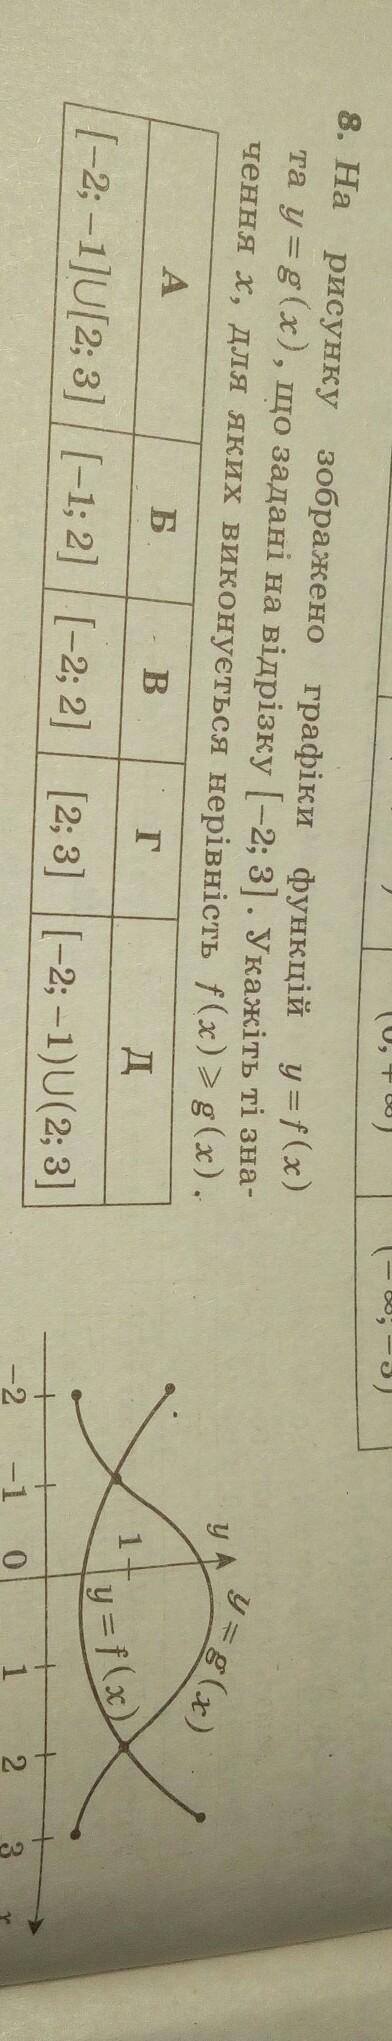 (0; +∞)
(−∞; −3)
8. На рисунку зображено графіки функцій y = f(x)
та y = g(x), що задані на відрізку [−2; 3]. Укажіть ті зна-
чення x, для яких виконується нерівність f(x) ⩾ g(x).
А Б В Г Д
[−2; −1]∪[2; 3] [−1; 2] [−2; 2] [2; 3] [−2; −1)∪(2; 3]
y
y = g(x)
1
y = f(x)
−2 −1 0 1 2 3 x